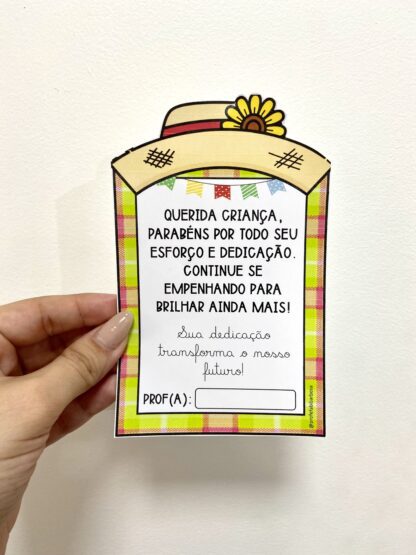 QUERIDA CRIANÇA,
PARABÉNS POR TODO SEU
ESFORÇO E DEDICAÇÃO.
CONTINUE SE
EMPENHANDO PARA
BRILHAR AINDA MAIS!
Sua dedicação
transforma o nosso
futuro!
PROF(A):